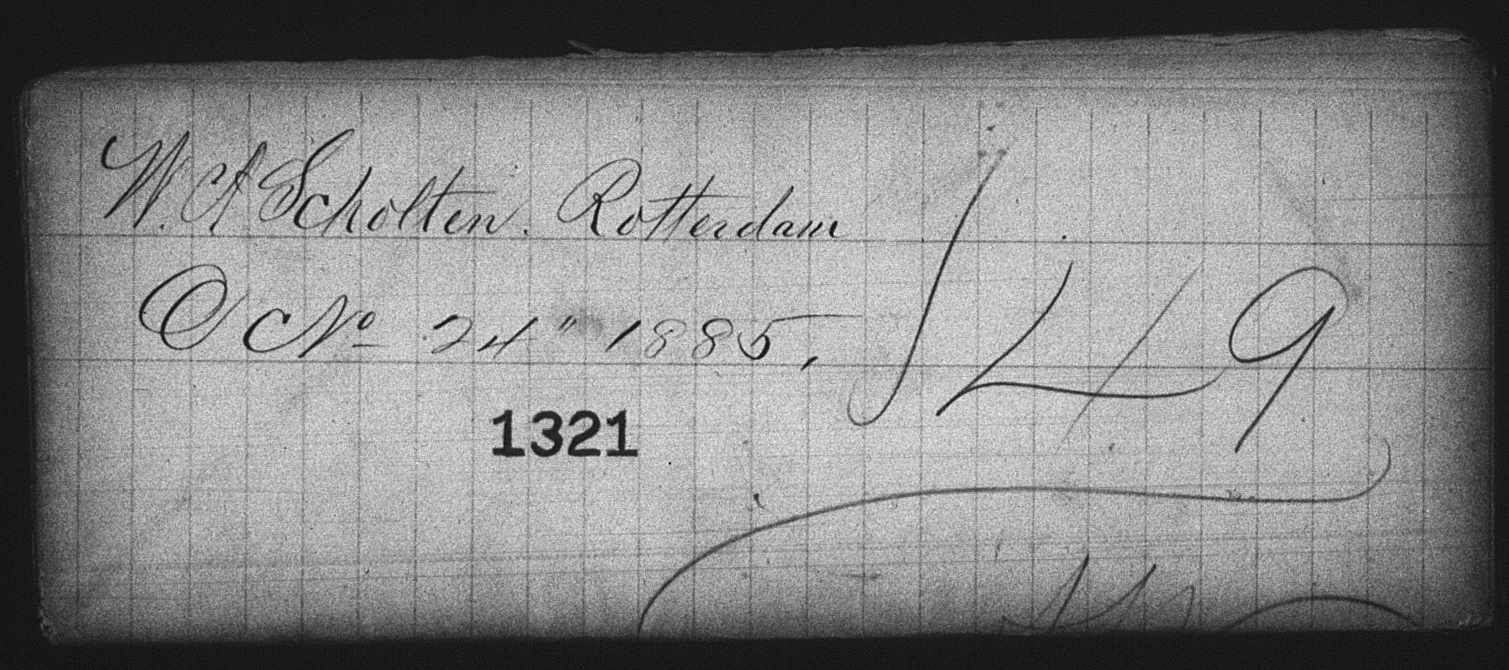 W. A Scholten. Rotterdam
Oct No 24" 1885,
149
1321